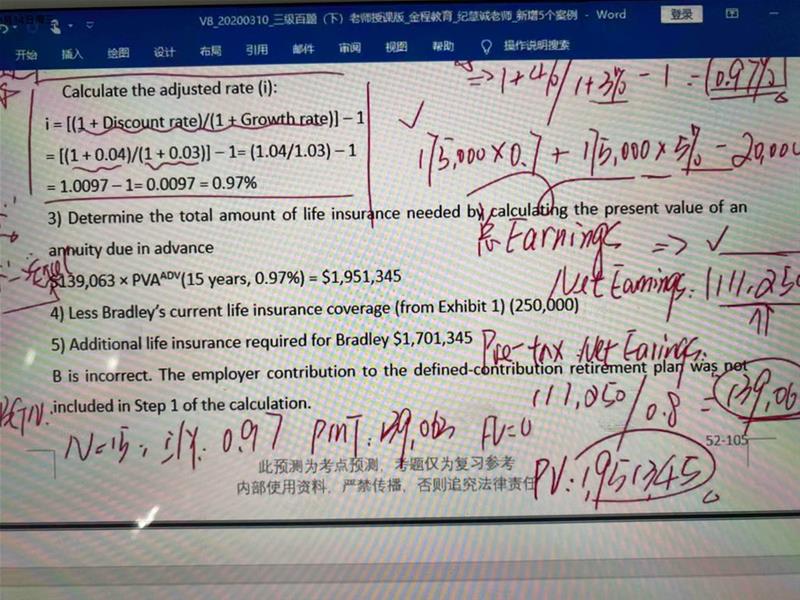 V8_20200310_三级百题（下）老师授课版_金程教育_纪慧诚老师_新增5个案例 - Word
登录
开始 插入 绘图 设计 布局 引用 邮件 审阅 视图 帮助 操作说明搜索
=> 1+4%/1+3% - 1 = 0.97%
Calculate the adjusted rate (i):
i = [(1 + Discount rate)/(1 + Growth rate)] − 1
= [(1 + 0.04)/(1 + 0.03)] − 1= (1.04/1.03) − 1
= 1.0097 − 1= 0.0097 = 0.97%
175,000 × 0.7 + 175,000 × 5% - 20,000
3) Determine the total amount of life insurance needed by calculating the present value of an
annuity due in advance
Earnings =>
$139,063 × PVAᴬᴰⱽ(15 years, 0.97%) = $1,951,345
Net Earnings: 111,250
4) Less Bradley's current life insurance coverage (from Exhibit 1) (250,000)
5) Additional life insurance required for Bradley $1,701,345
Pre-tax Net Earings:
B is incorrect. The employer contribution to the defined-contribution retirement plan was not
included in Step 1 of the calculation.
111,250/0.8 = 139,06
BGN.
N=15; i/Y: 0.97 PMT: 139,063 FV=0
PV: 1,951,345
52-105
此预测为考点预测，考题仅为复习参考
内部使用资料，严禁传播，否则追究法律责任